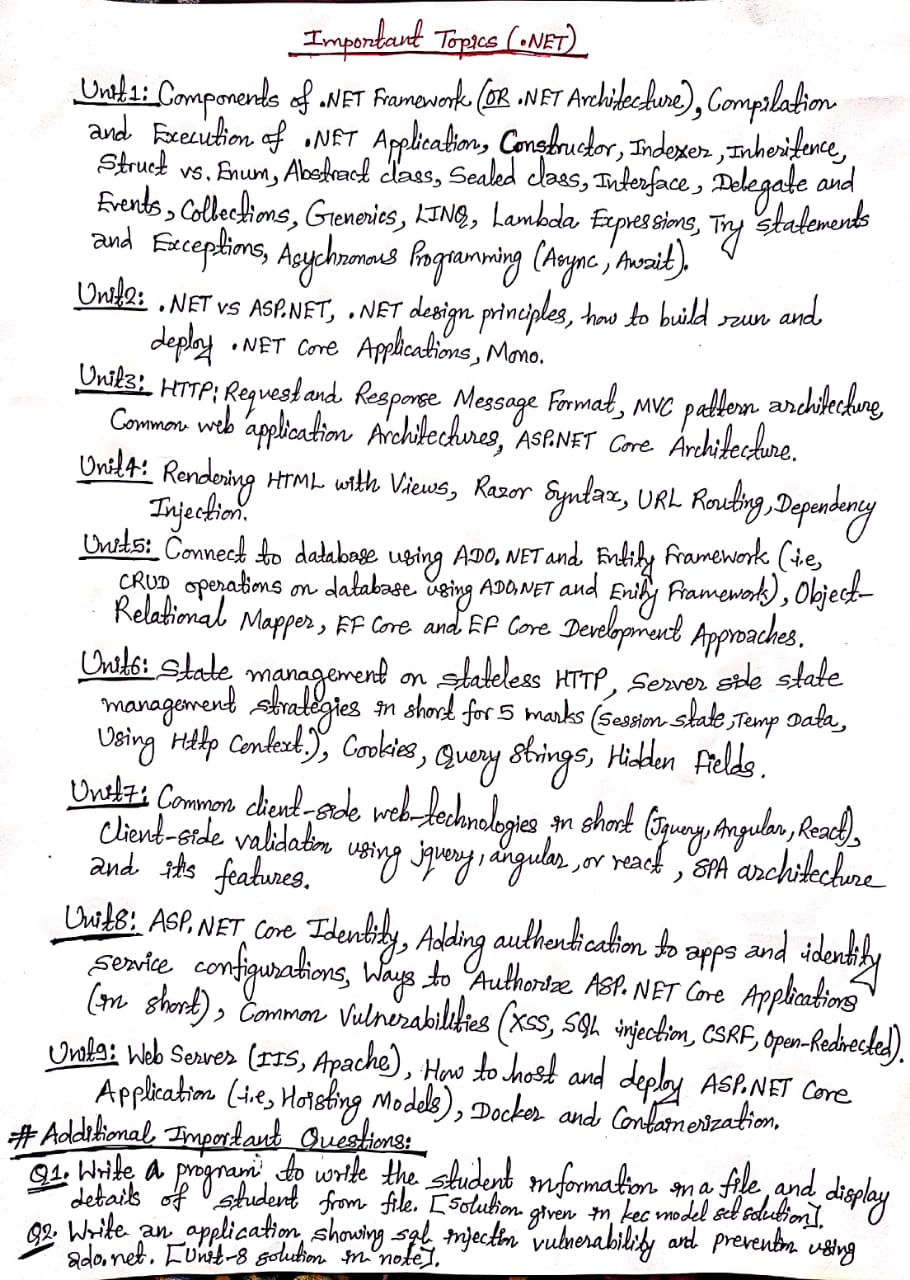 Important Topics (.NET)
Unit1: Components of .NET Framework (OR .NET Architecture), Compilation
and Execution of .NET Application, Constructor, Indexer, Inheritence,
Struct vs. Enum, Abstract class, Sealed class, Interface, Delegate and
Events, Collections, Generics, LINQ, Lambda Expressions, Try statements
and Exceptions, Asychronous Programming (Async, Await).
Unit2: .NET vs ASP.NET, .NET design principles, how to build run and
deploy .NET Core Applications, Mono.
Unit3: HTTP; Request and Response Message Format, MVC pattern architecture,
Common web application Architechures, ASP.NET Core Architecture.
Unit4: Rendering HTML with Views, Razor Syntax, URL Routing, Dependency
Injection.
Unit5: Connect to database using ADO.NET and Entity Framework (i.e,
CRUD operations on database using ADO.NET and Enity Framework), Object-
Relational Mapper, EF Core and EF Core Development Approaches.
Unit6: State management on stateless HTTP, Server side state
management strategies in short for 5 marks (Session state, Temp Data,
Using Http Context.), Cookies, Query Strings, Hidden Fields.
Unit7: Common client-side web-technologies in short (Jquery, Angular, React),
Client-side validation using jquery, angular, or react, SPA architecture
and it's features.
Unit8: ASP.NET Core Identity, Adding authentication to apps and identity
service configurations, Ways to Authorize ASP.NET Core Applications
(in short), Common Vulnerabilities (XSS, SQL injection, CSRF, Open-Redirected).
Unit9: Web Server (IIS, Apache), How to host and deploy ASP.NET Core
Application (i.e, Hoisting Models), Docker and Containerization.
# Additional Important Questions:
Q1. Write a program to write the student information in a file and display
details of student from file. [Solution given in kec model set solution].
Q2. Write an application showing sql injectin vulnerability and preventin using
ado.net. [Unit-8 solution in note].